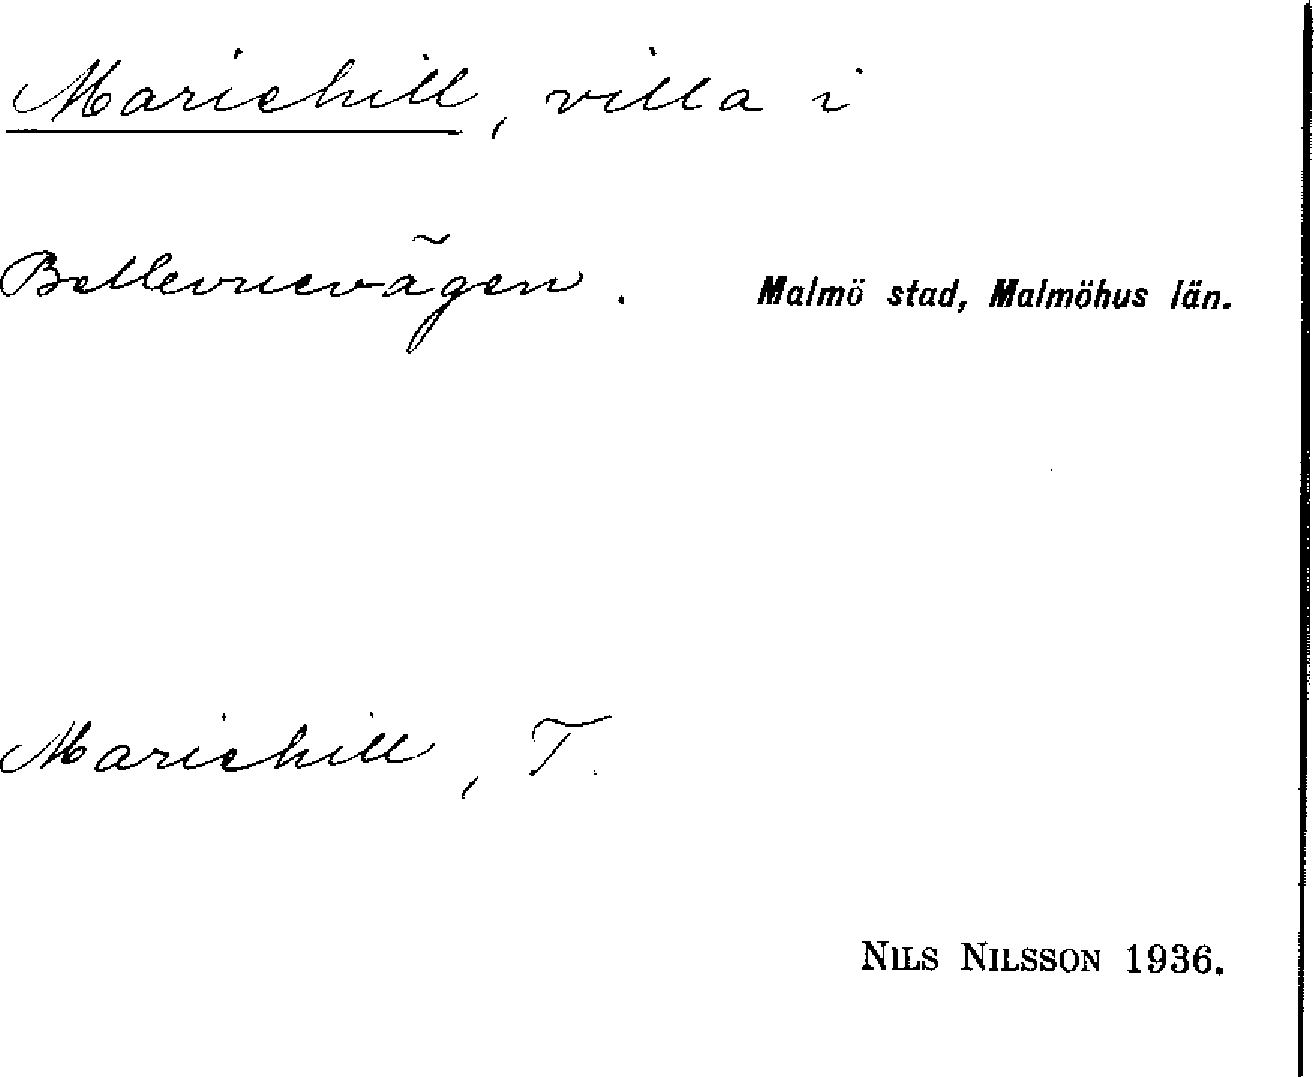 Mariehill, villa i
Bellevuevägen. Malmö stad, Malmöhus län.
Mariehill, T.
NILS NILSSON 1936.